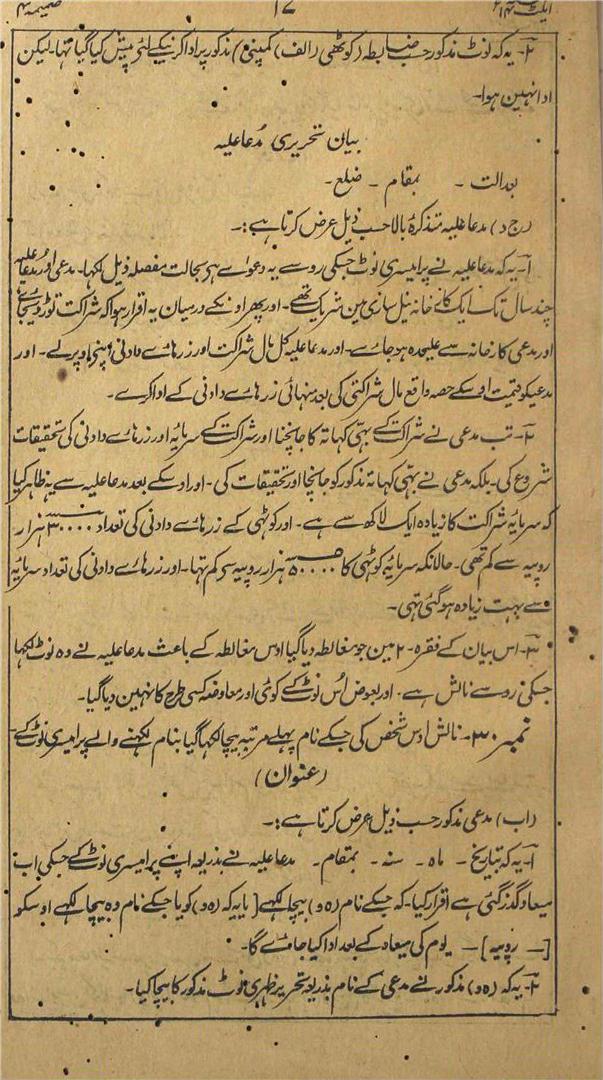 ایکٹ ۱۴ ۱۷ ضمیمہ ۴
۲- یہ کہ نوٹ مذکور حسب ضابطہ (کوٹھی (الف) کمپنی) مذکور پر ادا کرنیکے لئے پیش کیا گیا تھا- لیکن
ادا نہین ہوا-
بیان تحریری مُدعا علیہ
بعدالت - بمقام - ضلع -
(ج د) مدعا علیہ متذکرۂ بالا حسب ذیل عرض کرتا ہے :-
۱- یہ کہ مدعا علیہ نے پرامیسری نوٹ جسکی رو سے یہ دعوے ہے بحالت مفصلہ ذیل لکھا- مدعی اور مدعا علیہ
چند سال تک ایک کارخانہ نیل سازی مین شریک تھے- اور پھر اونکے درمیان یہ اقرار ہوا کہ شراکت توڑ دیجائے
اور مدعی کارخانہ سے علیحدہ ہو جاے- اور مدعا علیہ کل مال شراکت اور زرہاے دادنی اپنے اوپر لے- اور
مدعیکو قیمت اوسکے حصہ واقع مال شراکتی کی بعد منہائی زرہاے دادنی کے ادا کرے-
۲- تب مدعی نے شراکت کے بہی کہاتہ کا جانچنا اور شراکت کے سرمایہ اور زرہاے دادنی کی تحقیقات
شروع کی- بلکہ مدعی نے بہی کہاتہ مذکور کو جانچا اور تحقیقات کی- اور اوسکے بعد مدعا علیہ سے یہ ظاہر کیا
کہ سرمایہ شراکت کا زیادہ ایک لاکھ سے ہے- اور کوٹھی کے زرہاے دادنی کی تعداد ۳۰۰۰۰ ہزار
روپیہ سے کم تھی- حالانکہ سرمایہ کوٹھی کا ۵۰۰۰۰ ہزار روپیہ سے کم تھا- اور زرہاے دادنی کی تعداد سرمایہ
سے بہت زیادہ ہو گئی تھی-
۳- اس بیان کے فقرہ- ۲ مین جو مغالطہ دیا گیا اوس مغالطہ کے باعث مدعا علیہ نے وہ نوٹ لکھا
جسکی رو سے نالش ہے- اور بعوض اُس نوٹ کے کوئی اور معاوضہ کسی طرح کا نہین دیا گیا-
نمبر ۳۰- نالش اوس شخص کی جسکے نام پہلے مرتبہ بیچا لکھا گیا بنام لکھنے والے پرامیسری نوٹ کے-
(عنوان)
(اب) مدعی مذکور حسب ذیل عرض کرتا ہے :-
۱- یہ کہ بتاریخ - ماہ - سنہ - بمقام - مدعا علیہ نے بذریعہ اپنے پرامیسری نوٹ کے جسکی اب
میعاد گذر گئی ہے اقرار کیا- کہ جسکے نام (ہ و) بیچا لکھے [یا یہ کہ (ہ و) کو یا جسکے نام وہ بیچا لکھے اوسکو
[- روپیہ] - یوم کی میعاد کے بعد ادا کیا جاے گا-
۲- یہ کہ (ہ و) مذکور نے مدعی کے نام بذریعہ تحریر ظہری نوٹ مذکور کا بیچا کیا-